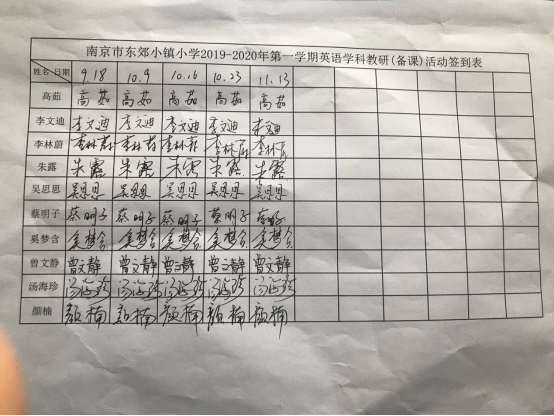 南京市东郊小镇小学2019-2020年第一学期英语学科教研(备课)活动签到表
姓名 日期 9.18 10.9 10.16 10.23 11.13
高茹 高茹 高茹 高茹 高茹 高茹
李文迪 李文迪 李文迪 李文迪 李文迪 李文迪
李林蔚 李林蔚 李林蔚 李林蔚 李林蔚 李林蔚
朱露 朱露 朱露 朱露 朱露 朱露
吴思思 吴思思 吴思思 吴思思 吴思思 吴思思
蔡明子 蔡明子 蔡明子 蔡明子 蔡明子 蔡明子
奚梦含 奚梦含 奚梦含 奚梦含 奚梦含 奚梦含
曾文静 曾文静 曾文静 曾文静 曾文静 曾文静
汤海珍 汤海珍 汤海珍 汤海珍 汤海珍 汤海珍
颜楠 颜楠 颜楠 颜楠 颜楠 颜楠